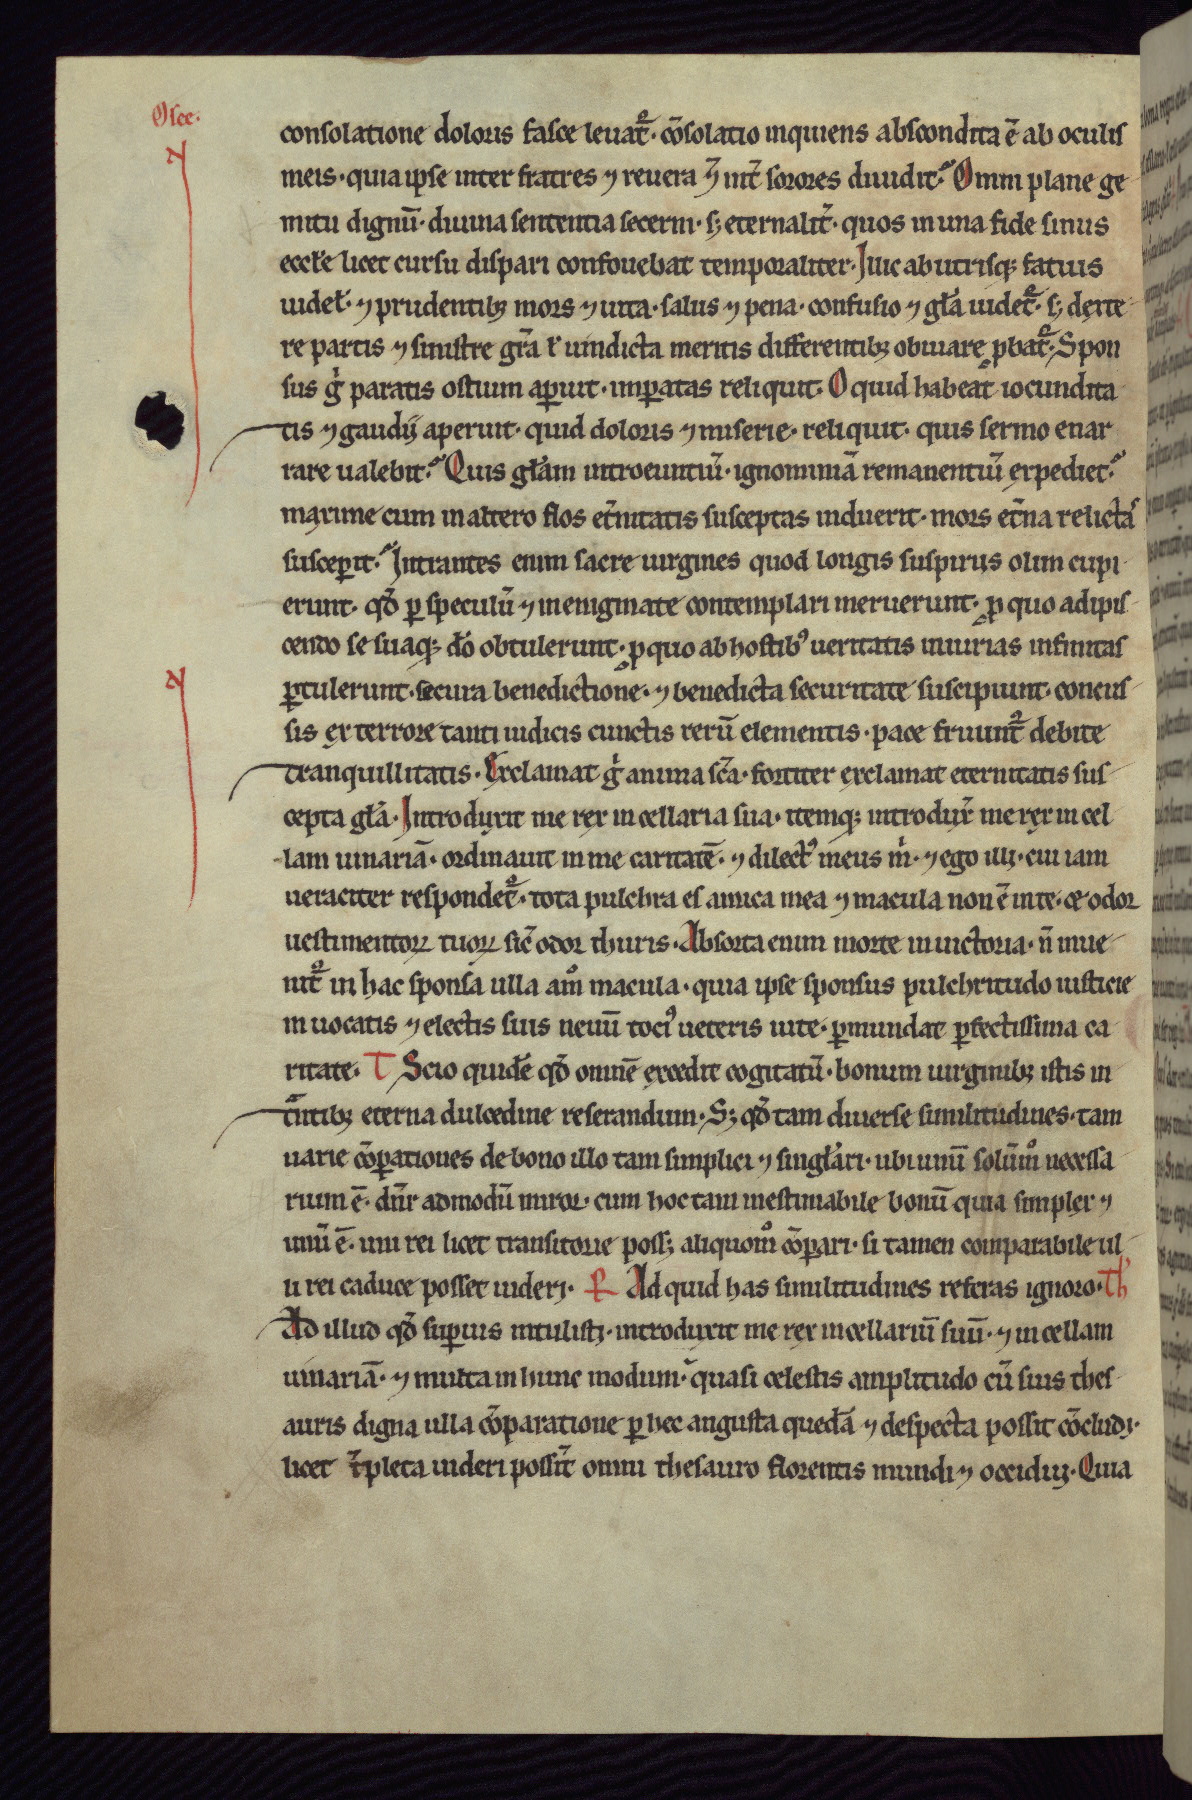 Osee·
consolatione doloris fasce leuat᷑· c̄solatio inquiens abscondita ē ab oculis
meis· quia ipse inter fratres ⁊ reuera ⁊ int̄ sorores diuidit· Omni plane ge
mitu dignū· diuina sententia secerni· sꝫ eternalit̄· quos in una fide sinus
eccl̄e licet cursu dispari confouebat temporaliter· Illic ab utrisqꝫ fatuis
uidel̄· ⁊ prudentibꝫ mors ⁊ uita· salus ⁊ pena· confusio ⁊ gl̄a uidet᷑· sꝫ dexte
re partis ⁊ sinistre gr̄a ł uindicta meritis differentibꝫ obuiare ꝓbat᷑· Spon
sus gͥ paratis ostium aꝑuit· imꝑatas reliquit· O quid habeat iocundita
tis ⁊ gaudij aperuit· quid doloris ⁊ miserie· reliquit· quis sermo enar
rare ualebit· Quis gl̄am introeuntiū· ignominiā remanentiū expediet·
maxime cum in altero flos et̄nitatis susceptas induerit· mors et̄na relictas
susceꝑit· Intrantes enim sacre uirgines quod longis suspiriis olim cupi
erunt· qđ ꝑ speculū ⁊ in enigmate contemplari meruerunt· ꝓ quo adipis
cendo se suaqꝫ dō obtulerunt· ꝓ quo ab hostibꝰ ueritatis iniurias infinitas
ꝑtulerunt· secura benedictione· ⁊ benedicta securitate suscipiunt· concus
sis ex terrore tanti iudicis cunctis rerū elementis· pace fruunt᷑ debite
tranquillitatis· Exclamat gͥ anima sc̄a· fortiter exclamat eternitatis sus
cepta gl̄a· Introduxit me rex in cellaria sua· itemqꝫ introdux̄ me rex in cel
lam uinariā· ordinauit in me caritatē· ⁊ dilectꝰ meus mͥ· ⁊ ego illi· cui iam
ueraciter respondet᷑· tota pulchra es amica mea ⁊ macula non ē in te· et odor
uestimentoꝝ tuoꝝ sic̄ odor thuris· Absorta enim morte in uictoria· n̄ inue
nit᷑ in hac sponsa ulla amͦ macula· quia ipse sponsus pulchritudo iusticie
in uocatis ⁊ electis suis neuū tociꝰ ueteris uite· ꝑmundat ꝑfectissima ca
ritate· T Scio quidē qđ omnē excedit cogitatū· bonum uirginibꝫ istis in
t̄ntibꝫ eterna dulcedine reserandum· Sꝫ qđ tam diuerse similitudines· tam
uarie cōꝑationes de bono illo tam simplici ⁊ singl̄ari· ubi unū solūmͦ necessa
rium ē· dn̄r admodū miror· cum hoc tam inestimabile bonū quia simplex ⁊
unū ē· uni rei licet transitorie possꝫ aliquomͦ cōꝑari· si tamen comparabile ul
li rei caduce posset uideri· R Ad quid has similitudines referas ignoro· Th
Ad illud qđ suꝑius intulisti· introduxit me rex in cellariū suū· ⁊ in cellam
uinariā· ⁊ multa in hunc modum· quasi celestis amplitudo cū suis thes
auris digna ulla cōparatione ꝑ hec angusta quedā ⁊ despecta possit cōcludi·
licet t̄pleta uideri possīt omni thesauro florentis mundi ⁊ occidui· Quia